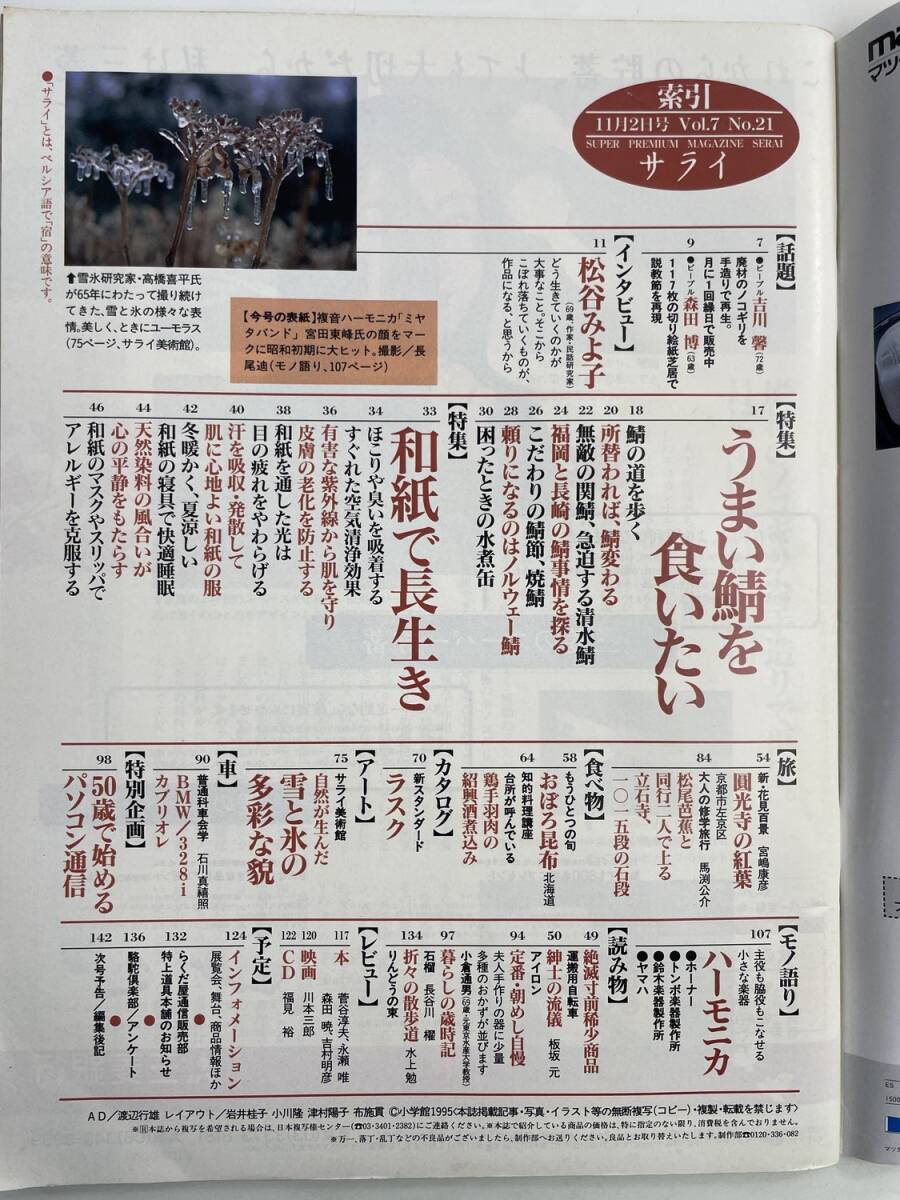 索引
11月2日号 Vol.7 No.21
SUPER PREMIUM MAGAZINE SERAI
サライ
●「サライ」とは、ペルシア語で「宿」の意味です。
⬆雪氷研究家・高橋喜平氏
が65年にわたって撮り続け
てきた、雪と氷の様々な表
情。美しく、ときにユーモラス
(75ページ、サライ美術館)。
【今号の表紙】複音ハーモニカ「ミヤ
タバンド」 宮田東峰氏の顔をマー
クに昭和初期に大ヒット。撮影/長
尾迪(モノ語り、107ページ)
【話題】
7
●ピープル 吉川 馨(72歳)
廃材のノコギリを
手造りで再生。
月に1回縁日で販売中
9
●ピープル 森田 博(63歳)
117枚の切り絵紙芝居で
説教節を再現
【インタビュー】
11
松谷みよ子
(69歳、作家・民話研究家)
どう生きていくのかが
大事なこと。そこから
こぼれ落ちていくものが、
作品になる、と思うから
【特集】
17
うまい鯖を
食いたい
18
鯖の道を歩く
20
所替われば、鯖変わる
22
無敵の関鯖、急追する清水鯖
24
福岡と長崎の鯖事情を探る
26
こだわりの鯖節、焼鯖
28
頼りになるのはノルウェー鯖
30
困ったときの水煮缶
【特集】
33
和紙で長生き
34
ほこりや臭いを吸着する
すぐれた空気清浄効果
36
有害な紫外線から肌を守り
皮膚の老化を防止する
38
和紙を通した光は
目の疲れをやわらげる
40
汗を吸収・発散して
肌に心地よい和紙の服
42
冬暖かく、夏涼しい
和紙の寝具で快適睡眠
44
天然染料の風合いが
心の平静をもたらす
46
和紙のマスクやスリッパで
アレルギーを克服する
【旅】
54
新・花見百景 宮嶋康彦
圓光寺の紅葉
京都市左京区
84
大人の修学旅行 馬渕公介
松尾芭蕉と
同行二人で上る
立石寺、
一〇一五段の石段
【食べ物】
58
もうひとつの旬
おぼろ昆布 北海道
64
台所が呼んでいる
知的料理講座
鶏手羽肉の
紹興酒煮込み
【カタログ】
70
新スタンダード
ラスク
【アート】
75
サライ美術館
自然が生んだ
雪と氷の
多彩な貌
【車】
90
普通科車会学 石川真禧照
BMW/328i
カブリオレ
【特別企画】
98
50歳で始める
パソコン通信
【モノ語り】
107
主役も脇役もこなせる
小さな楽器
ハーモニカ
●ホーナー
●トンボ楽器製作所
●鈴木楽器製作所
●ヤマハ
【読み物】
49
絶滅寸前稀少商品
運搬用自転車
50
紳士の流儀 板坂 元
アイロン
94
定番・朝めし自慢
夫人手作りの器に少量
多種のおかずが並びます
小倉通男(69歳・元東京水産大学教授)
97
暮らしの歳時記
石榴 長谷川 櫂
134
折々の散歩道 水上 勉
りんどうの束
【レビュー】
117
本 菅谷淳夫、永瀬 唯
森田 暁、吉村明彦
120
映画 川本三郎
122
CD 福見 裕
【予定】
124
インフォメーション
展覧会、舞台、商品情報ほか
●
らくだ屋通信販売部
132
特上道具本舗のお知らせ
●
136
駱駝倶楽部/アンケート
●
142
次号予告/編集後記
AD/渡辺行雄 レイアウト/岩井桂子 小川隆 津村陽子 布施貫 ©小学館1995〈本誌掲載記事・写真・イラスト等の無断複写(コピー)・複製・転載を禁じます〉
※Ⓡ本誌から複写を希望される場合は、日本複写権センター(☎03・3401・2382)にご連絡ください。※本誌で紹介している商品の価格は、特に指定のない限り、消費税を含んでおりません。
※万一、落丁・乱丁などの不良品がございましたら、制作部へお送りください。良品とお取り替えいたします。制作部☎0120・336・082
ma
マツ
ES
1500
マツダ